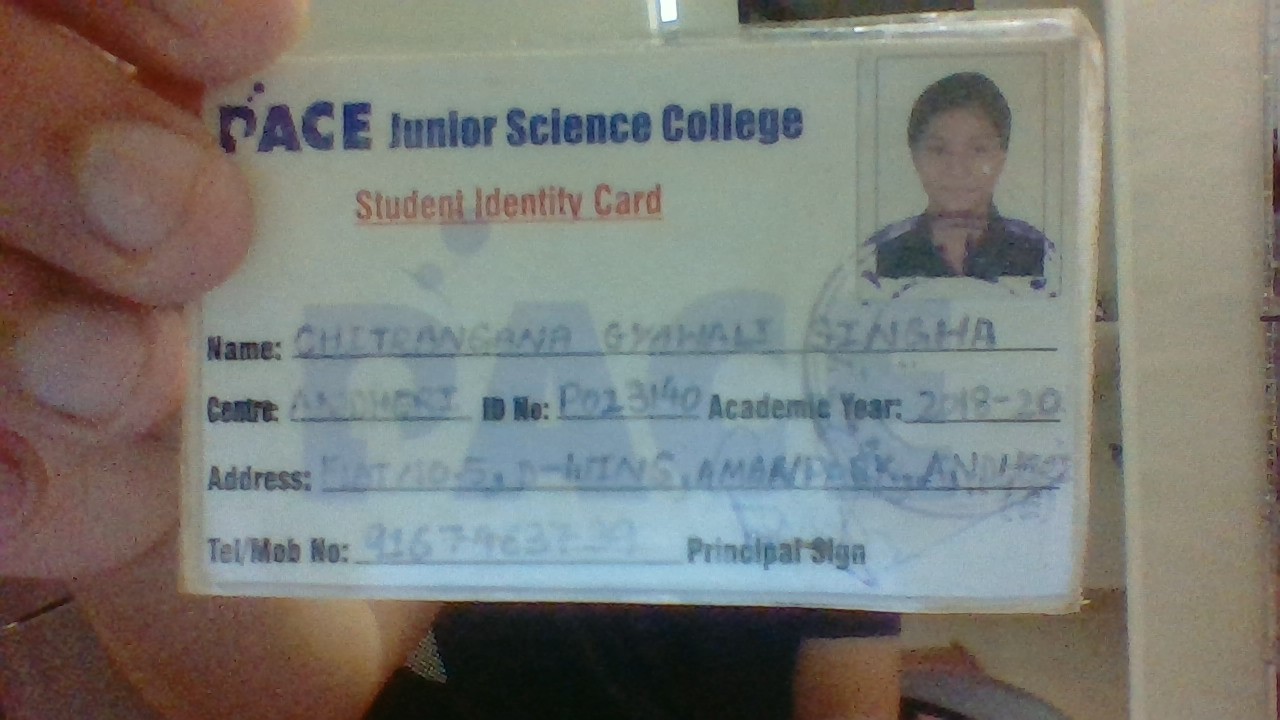 PACE Junior Science College
Student Identity Card
Name: CHITRANGANA GYAWALI SINGHA
Centre: ANDHERI ID No: P023140 Academic Year: 2018-20
Address: D-WING, AMAR PARK, ANDHERI
Tel/Mob No: Principal Sign